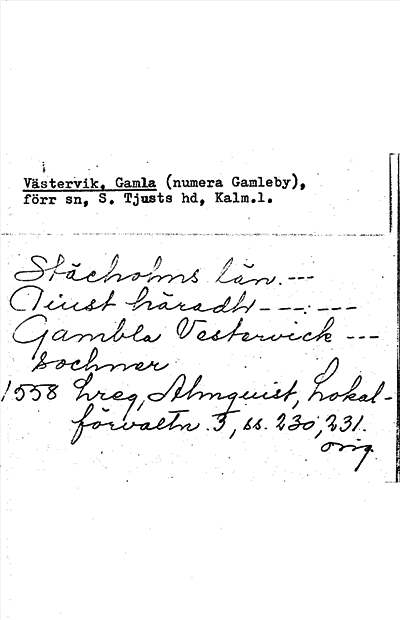 Västervik, Gamla (numera Gamleby),
förr sn, S. Tjusts hd, Kalm.l.
Stächolms län.---
Tiust häradh ---:---
Gambla Vestervick ---
sochner
1558 hreg, Almquist, Lokal-
förvaltn. 3, ss. 230, 231.
orig.